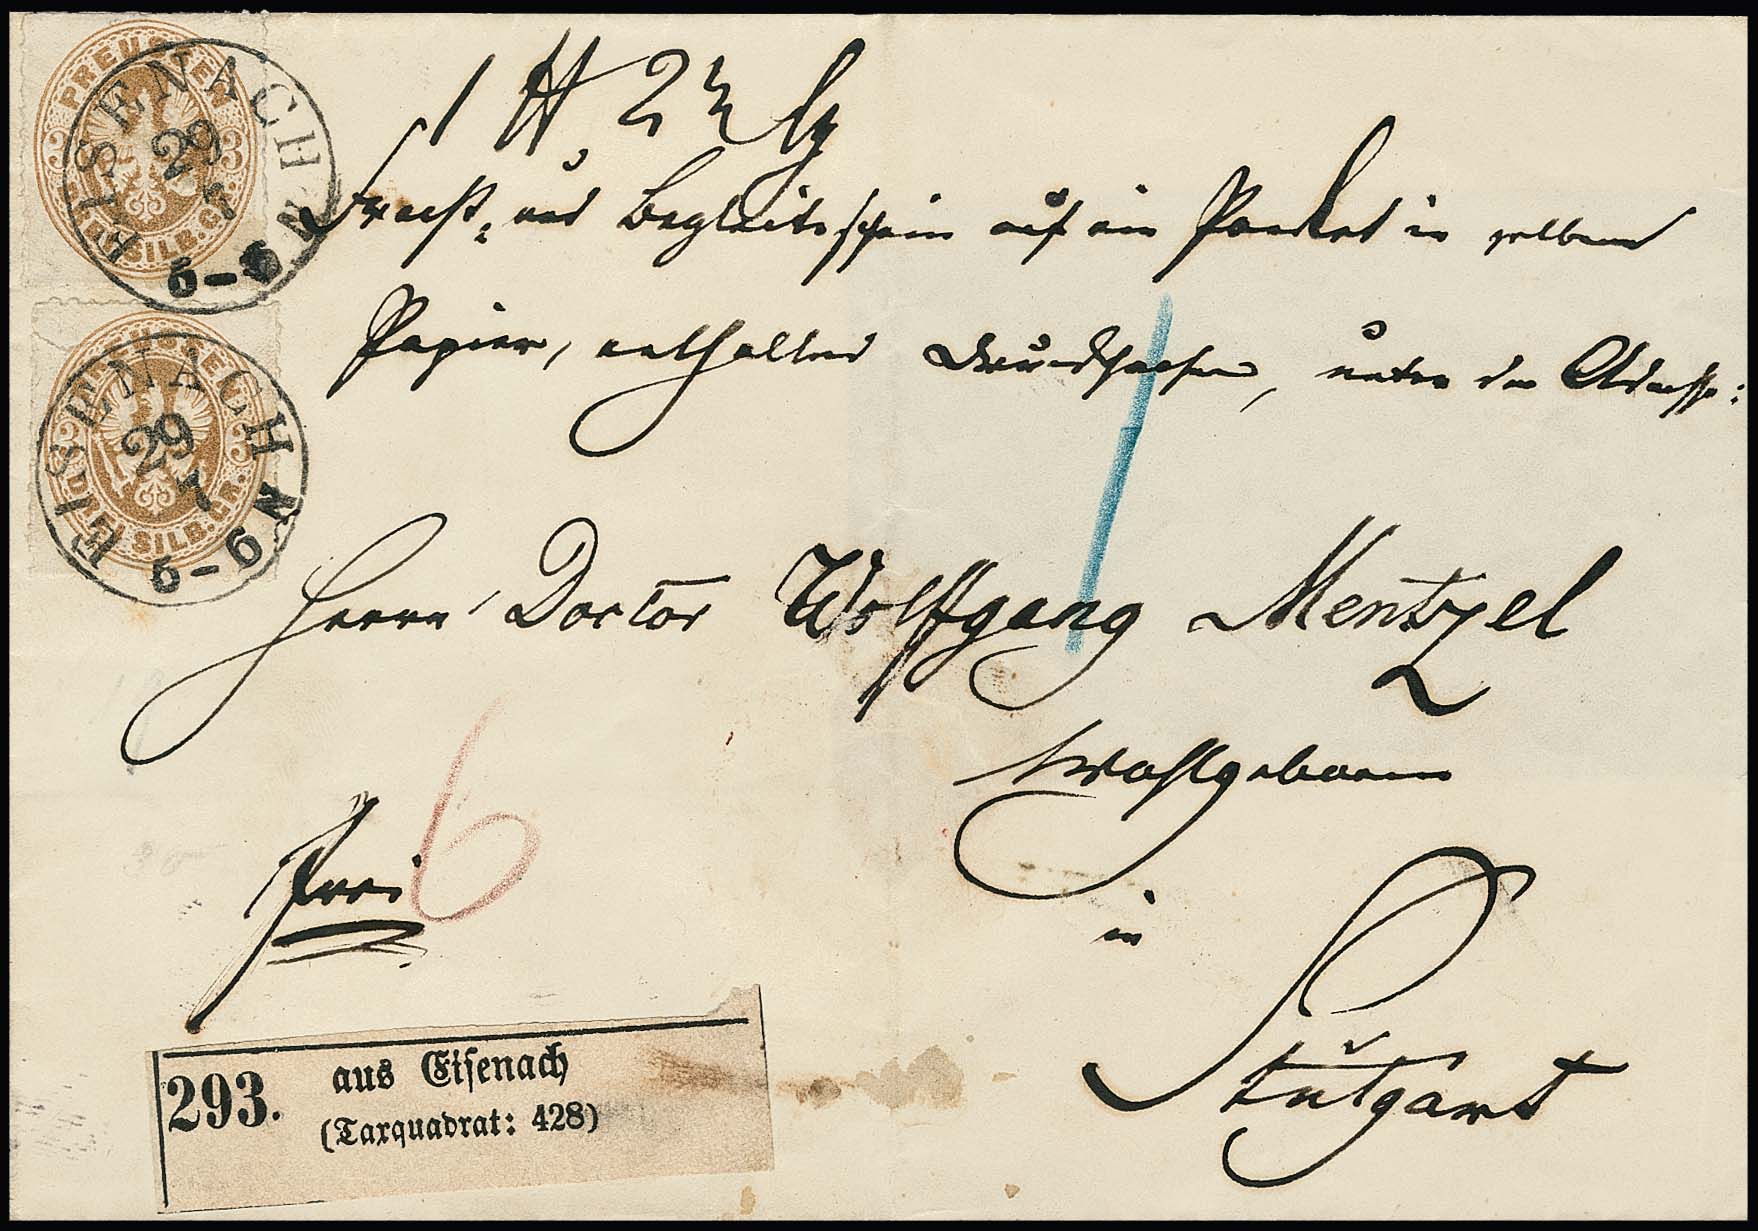 PREUSSEN
DREI SILB.GR.
EISENACH
29
7
5-6 N
PREUSSEN
DREI SILB.GR.
EISENACH
29
7
5-6 N
1 ℔ 2
Fracht- und Begleitschein auf ein Packet in gelbem
Papier, enthaltend Drucksachen, unter der Adresse:
Herrn Doctor Wolffgang Mentzel
Wohlgeboren
6
frei
in
Stutgart
293.
aus Eisenach
(Taxquadrat: 428)